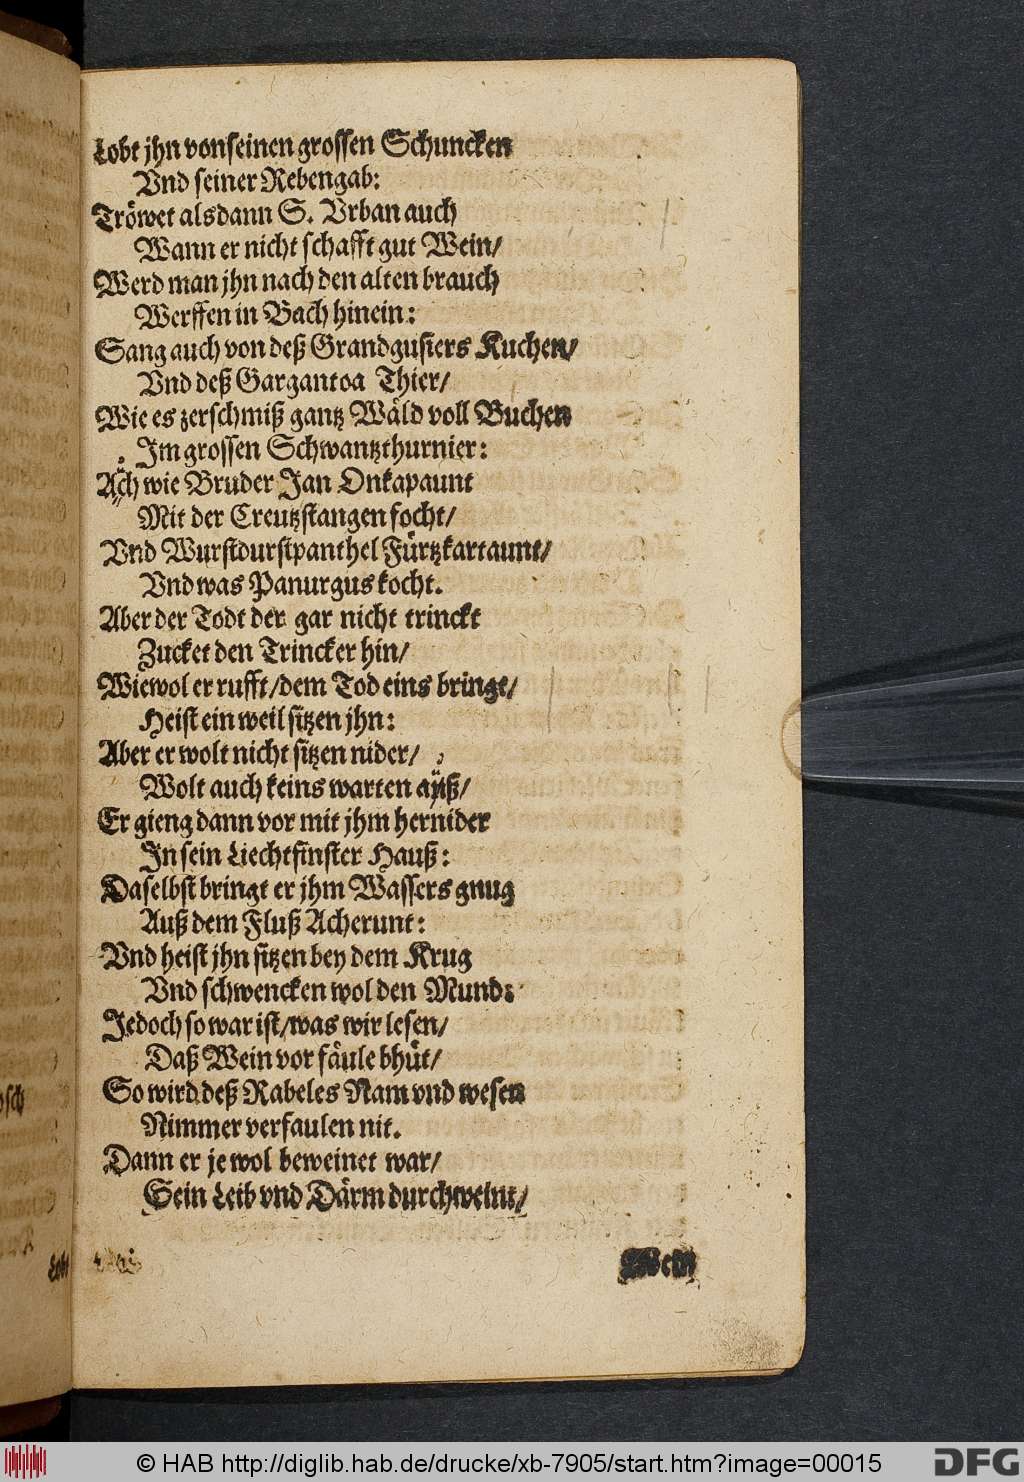 Lobt jhn von seinen grossen Schuncken
Vnd seiner Rebengab:
Tröwet alsdann S. Vrban auch
Wann er nicht schafft gut Wein/
Werd man jhn nach den alten brauch
Werffen in Bach hinein:
Sang auch von deß Grandgusiers Kuchen/
Vnd deß Gargantoa Thier/
Wie es zerschmiß gantz Wäld voll Buchen
Im grossen Schwantzthurnier:
Ach wie Bruder Jan Onkapaunt
Mit der Creutzstangen focht/
Vnd Wurstdurstpanthel Fürtzkartaunt/
Vnd was Panurgus kocht.
Aber der Todt der gar nicht trinckt
Zucket den Trincker hin/
Wiewol er rufft/dem Tod eins bringt/
Heist ein weil sitzen jhn:
Aber er wolt nicht sitzen nider/
Wolt auch keins warten auß/
Er gieng dann vor mit jhm hernider
In sein Liechtfinster Hauß:
Daselbst bringt er jhm Wassers gnug
Auß dem Fluß Acherunt:
Vnd heist jhn sitzen bey dem Krug
Vnd schwencken wol den Mund:
Jedoch so war ist/was wir lesen/
Daß Wein vor fäule bhüt/
So wird deß Rabeles Nam vnd wesen
Nimmer verfaulen nit.
Dann er je wol beweinet war/
Sein Leib vnd Därm durchweint/
Wein
Lobt
© HAB http://diglib.hab.de/drucke/xb-7905/start.htm?image=00015
DFG